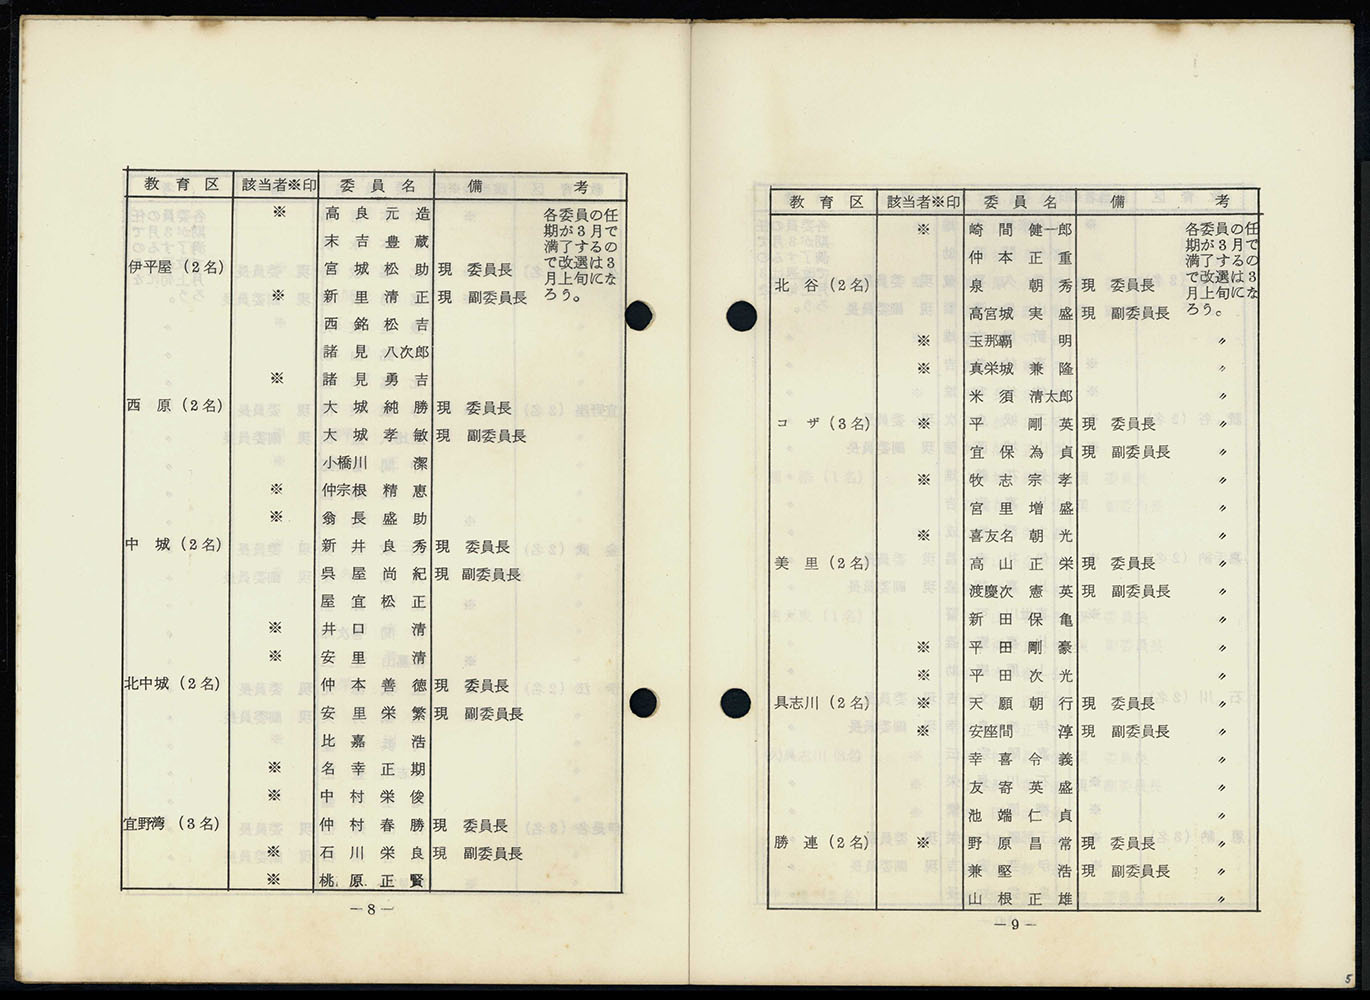 教育区 該当者※印 委員名 備考
※ 高良元造 各委員の任
末吉豊蔵 期が3月で
伊平屋(2名) 宮城松助 現 委員長 満了するの
※ 新里清正 現 副委員長 で改選は3
西銘松吉 月上旬にな
諸見八次郎 ろう。
※ 諸見勇吉
西原(2名) 大城純勝 現 委員長
大城孝敏 現 副委員長
小橋川潔
※ 仲宗根精恵
※ 翁長盛助
中城(2名) 新井良秀 現 委員長
呉屋尚紀 現 副委員長
屋宜松正
※ 井口清
※ 安里清
北中城(2名) 仲本善徳 現 委員長
安里栄繁 現 副委員長
比嘉浩
※ 名幸正期
※ 中村栄俊
宜野湾(3名) 仲村春勝 現 委員長
※ 石川栄良 現 副委員長
※ 桃原正賢
—8—
教育区 該当者※印 委員名 備考
※ 崎間健一郎 各委員の任
仲本正重 期が3月で
北谷(2名) 泉朝秀 現 委員長 満了するの
高宮城実盛 現 副委員長 で改選は3
月上旬にな
ろう。
※ 玉那覇明 〃
※ 真栄城兼隆 〃
米須清太郎 〃
コザ(3名) ※ 平剛英 現 委員長 〃
宜保為貞 現 副委員長 〃
※ 牧志宗孝 〃
宮里増盛 〃
※ 喜友名朝光 〃
美里(2名) 高山正栄 現 委員長 〃
渡慶次憲英 現 副委員長 〃
新田保亀 〃
※ 平田剛豪 〃
※ 平田次光 〃
具志川(2名) ※ 天願朝行 現 委員長 〃
※ 安座間淳 現 副委員長 〃
幸喜令義 〃
友寄英盛 〃
池端仁貞 〃
勝連(2名) ※ 野原昌常 現 委員長 〃
兼堅浩 現 副委員長 〃
山根正雄 〃
—9—
5